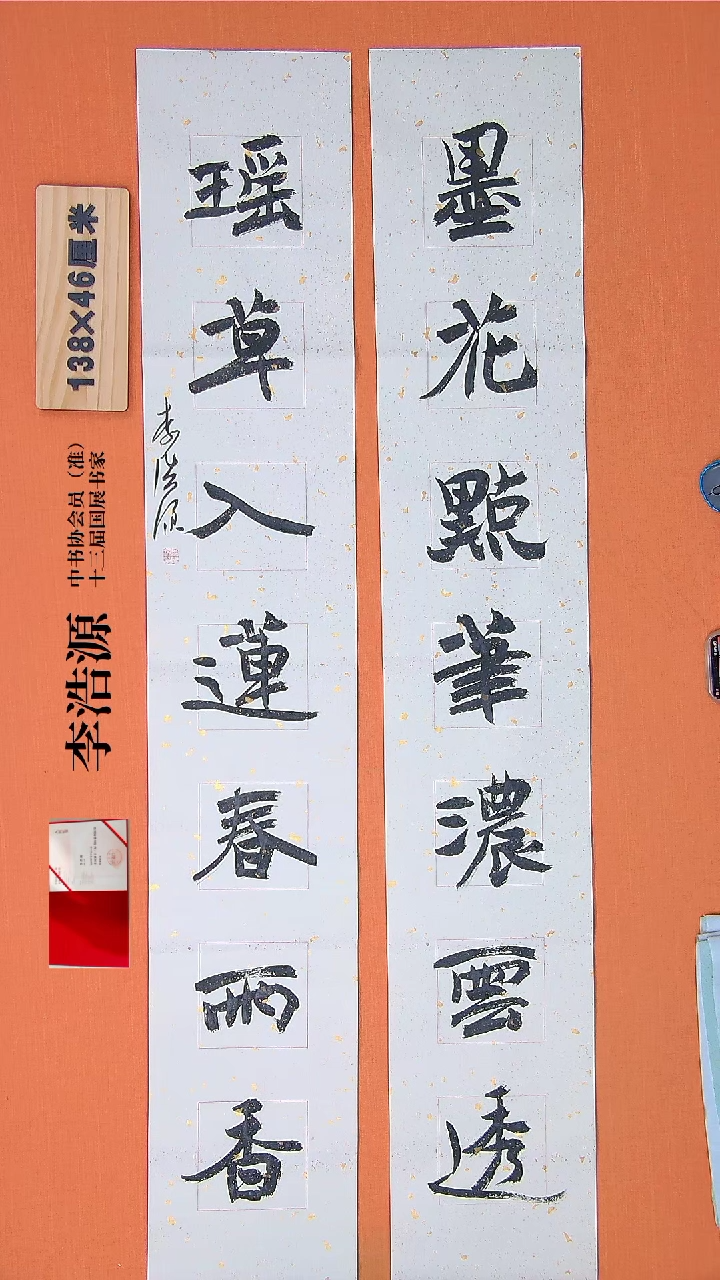 墨花點筆濃雲透
瑶草入蓮春雨香
李浩源
138×46厘米
中书协会员（准）
十三届国展书家
李浩源